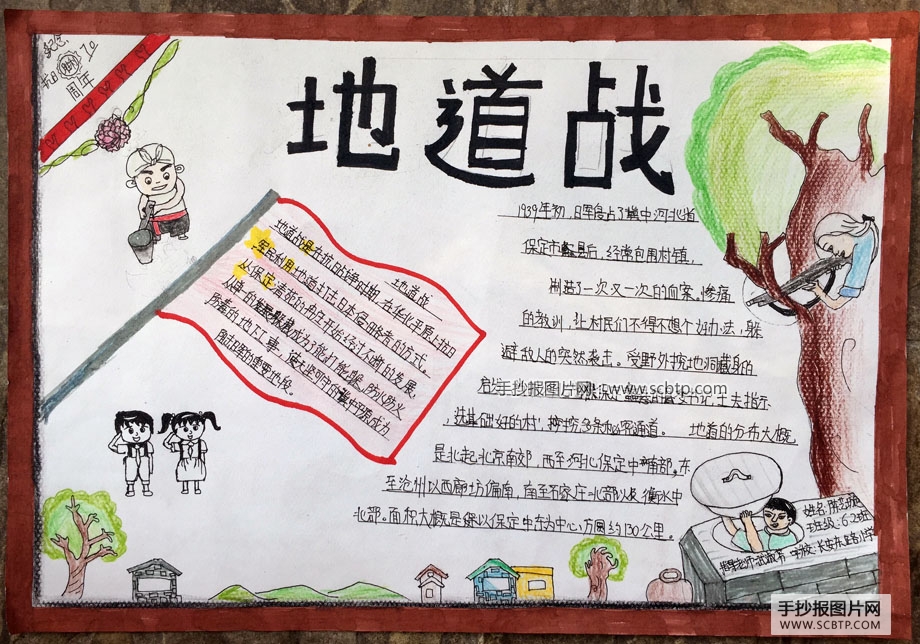 纪念
抗日 70
周年
地道战
地道战
地道战是在抗日战争时期,在华北平原上抗日
军民利用地道打击日本侵略者的方式。
从保定清苑的冉庄开始经过不断的发展,
从单一的躲藏成为了能打能躲、防水防火
防毒的地下工事,
1939年初,日军侵占了冀中河北省
保定市蠡县后,经常包围村镇,
制造了一次又一次的血案。惨痛
的教训,让村民们不得不想个好办法,躲
避敌人的突然袭击。受野外挖地洞藏身的
手抄报图片网 www.scbtp.com
,选基础好的村,挖秘密通道。 地道的分布大概
是北起北京南郊,西至河北保定中南部。东
至沧州以西廊坊偏南,南至石家庄北部以及衡水中
北部。面积大概是以保定中东为中心,方圆约130公里。
姓名:
班级:6.2班
学校:长安东路小学
手抄报图片网
WWW.SCBTP.COM